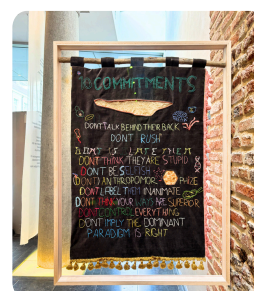 10 COMMITMENTS
DON'T TALK BEHIND THEIR BACK
DON'T RUSH
DON'T THINK THEY ARE STUPID
DON'T BE SELFISH
DON'T ANTHROPOMOR PHIZE
DON'T LABEL THEM INANIMATE
DON'T THINK YOUR WAYS ARE SUPERIOR
DON'T CONTROL EVERYTHING
DON'T IMPLY THE DOMINANT
PARADIGM IS RIGHT